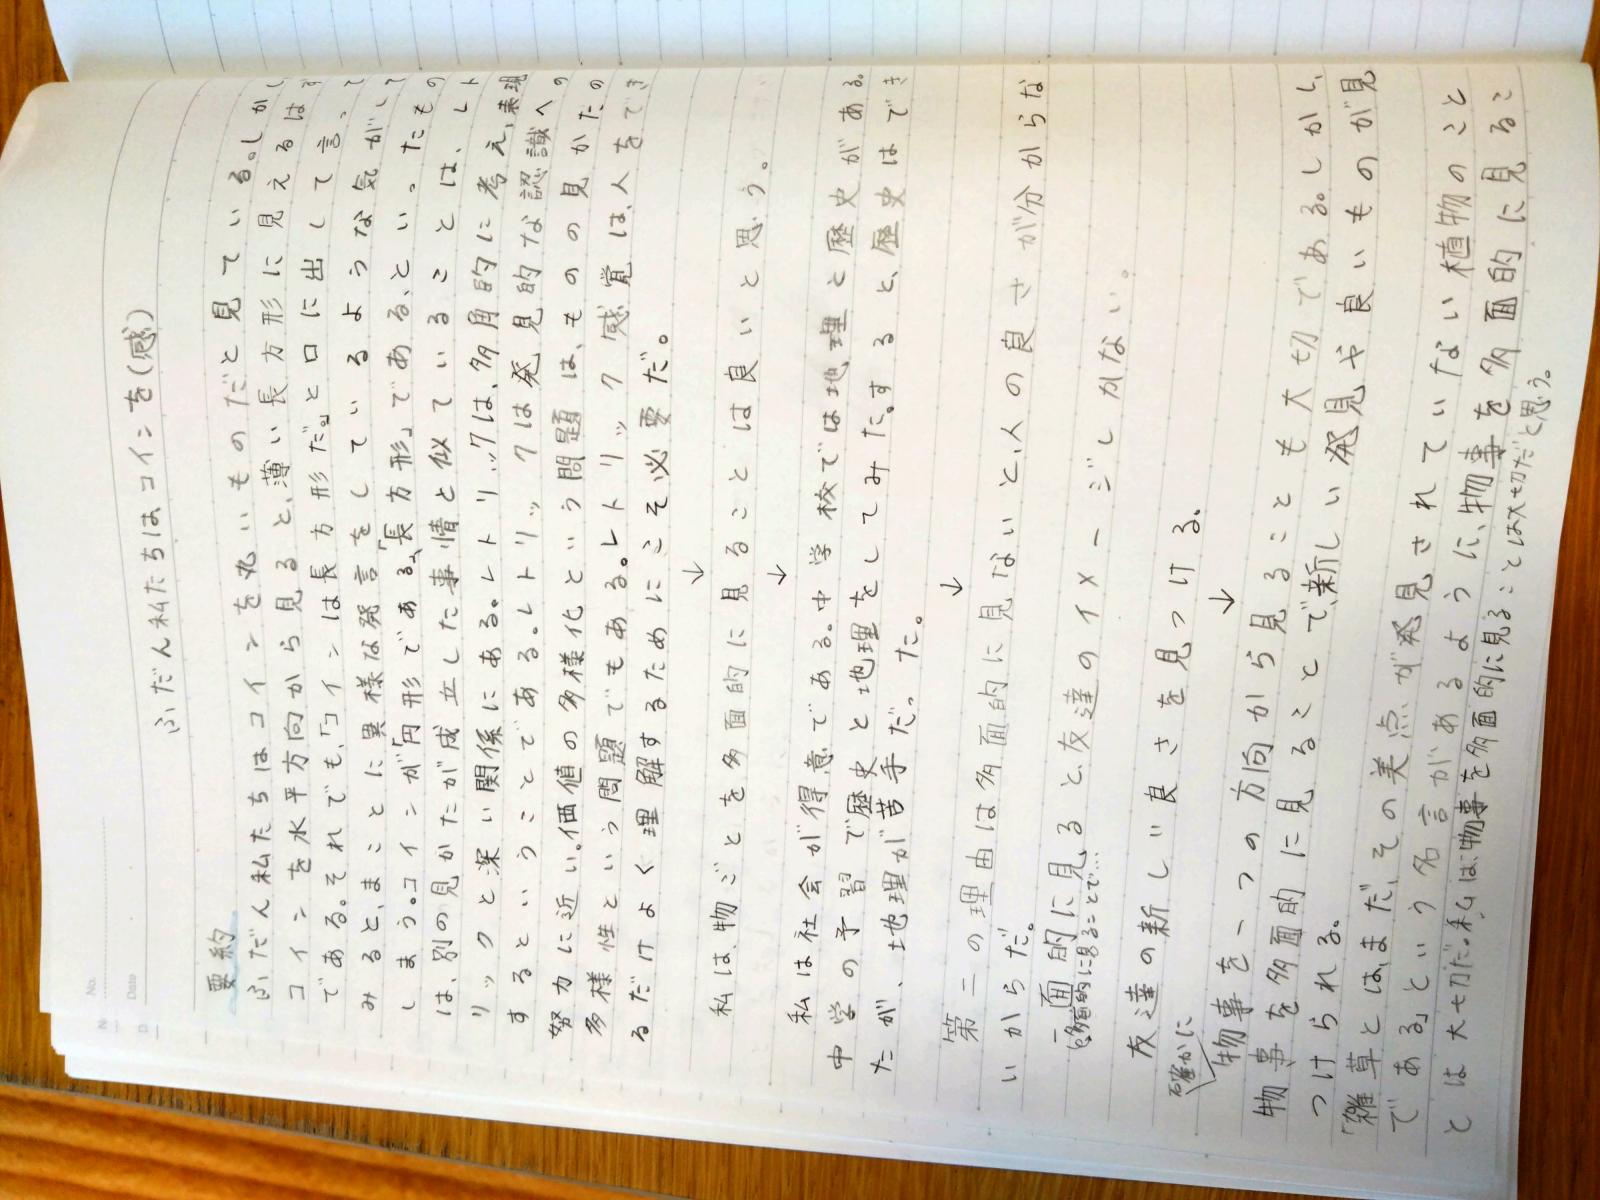 No.
Date
ふだん私たちはコインを(感)
要約
ふだん私たちはコインを丸いものだと見ている。しかし
コインを水平方向から見ると、薄い長方形に見えるはず
である。それでも、「コインは長方形だ。」と口に出して言っ
みると、まことに異様な発言をしているような気がして
しまう。コインが「円形である」、「長方形」である、といったもの
は、別の見かたが成立した事情と似ていることは、レト
リックと深い関係にある。レトリックは、多角的に考え、表現
するということである。レトリックは発見的な認識への
努力に近い。価値の多様化という問題は、ものの見かたの
多様性という問題でもある。レトリック感覚は、人をでき
るだけよく理解するためにこそ必要だ。
↓
私は、物ごとを多面的に見ることは良いと思う。
↓
私は社会が得意である。中学校では地理と歴史がある。
中学の予習で歴史と地理をしてみた。すると、歴史はでき
たが、地理が苦手だった。
↓
第二の理由は多面的に見ないと、人の良さが分からな
いからだ。
一面的に見ると、友達のイメージしかない。
(多面的に見ることで…
友達の新しい良さを見つける。
↓
確かに
物事を一つの方向から見ることも大切である。しかし、
物事を多面的に見ることで、新しい発見や良いものが見
つけられる。
「雑草とは、まだ、その美点が発見されていない植物のこと
である」という名言があるように、物事を多面的に見るこ
とは大切だ。私は、物事を多面的に見ることは大切だと思う。